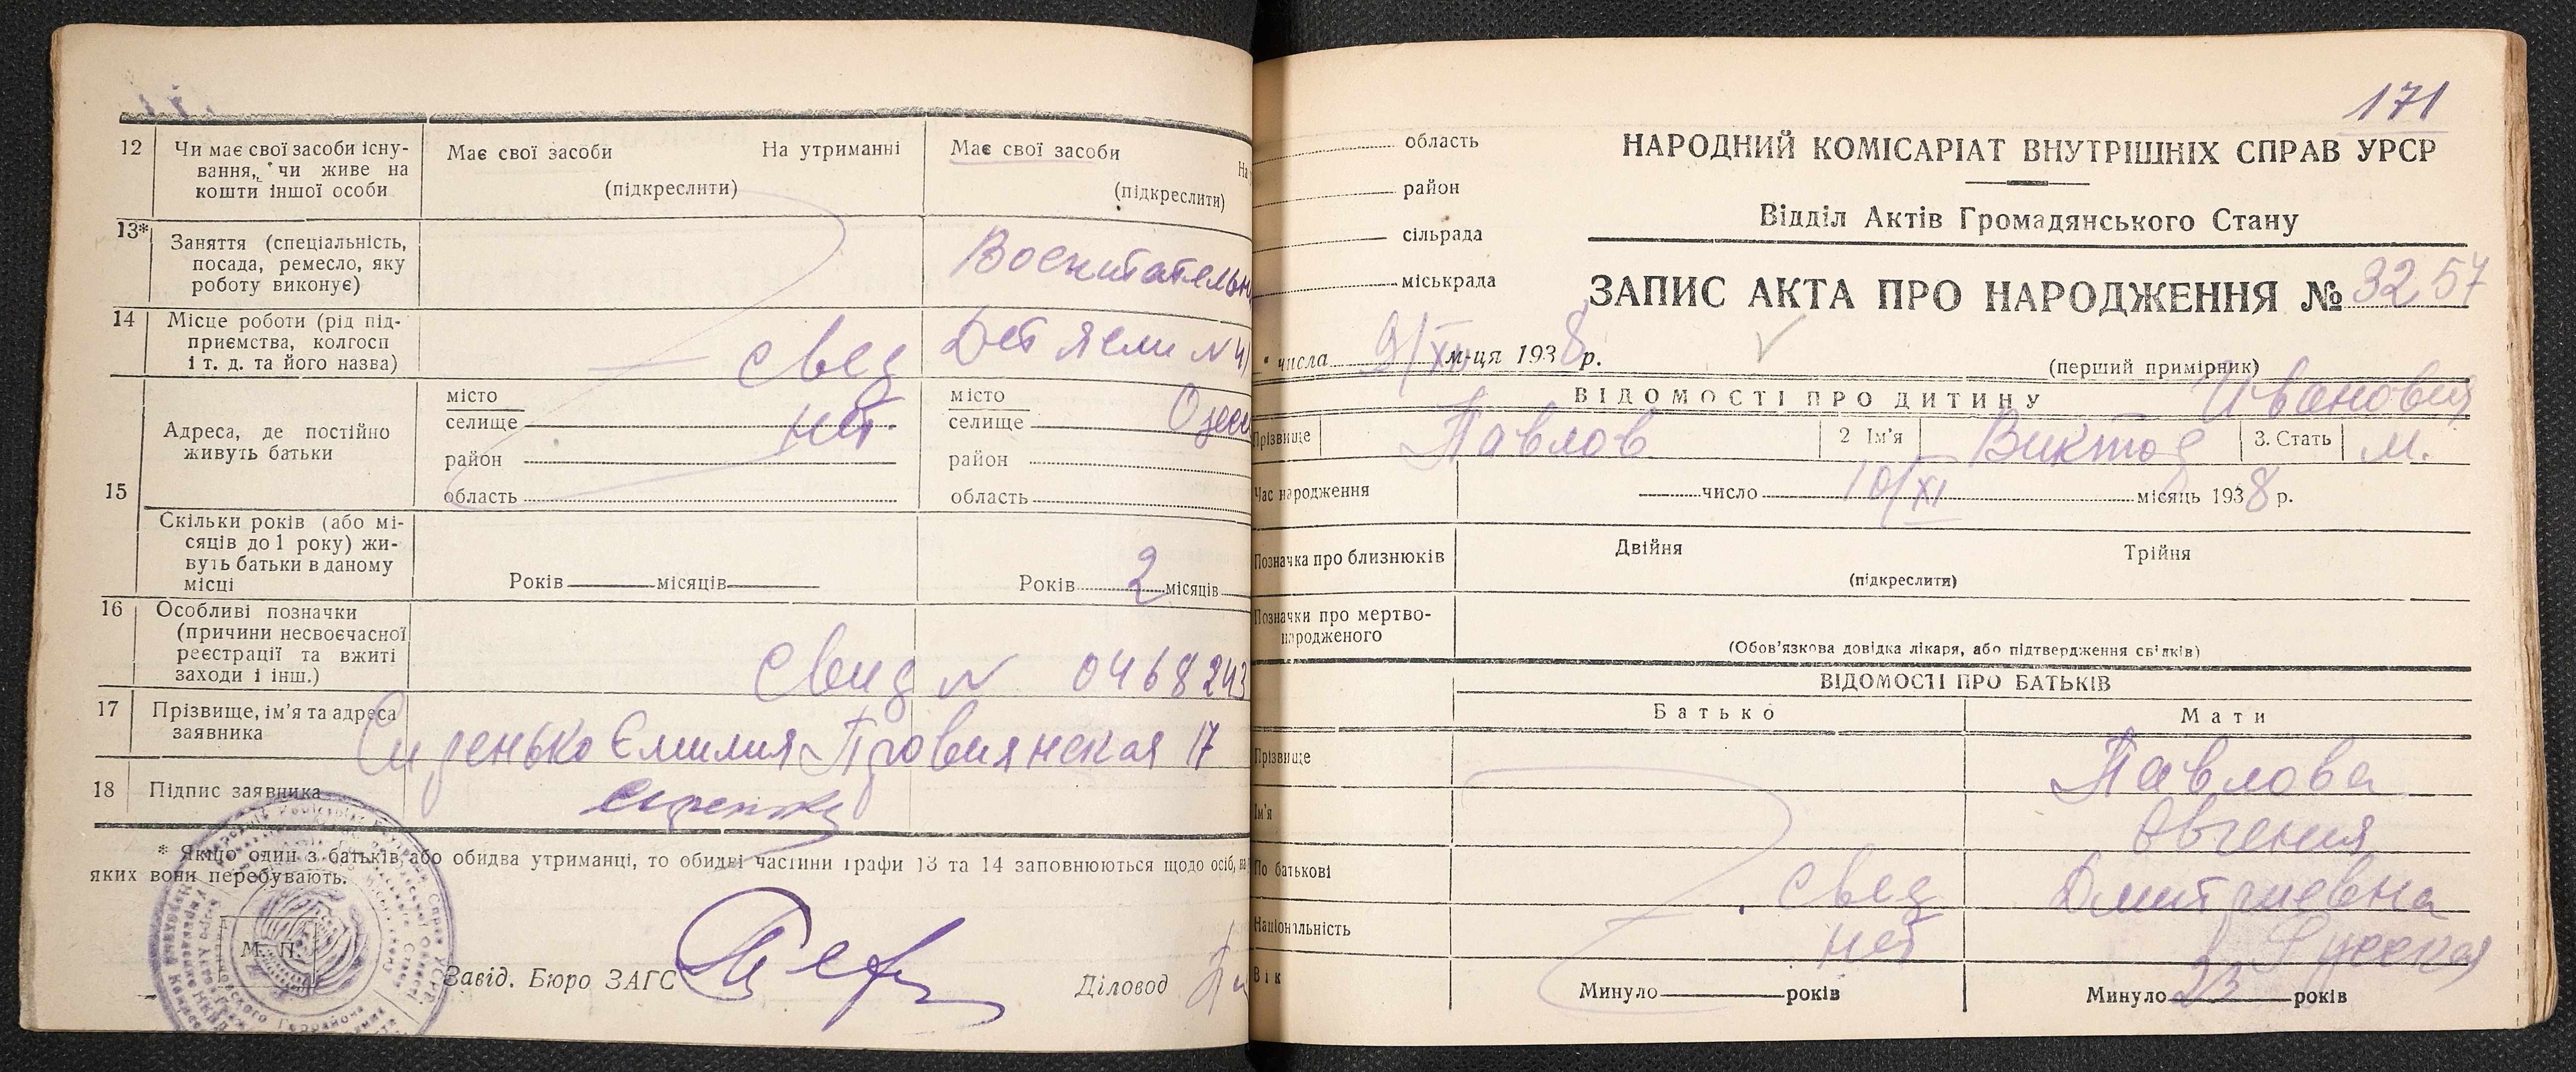 12 Чи має свої засоби існу-
вання, чи живе на
кошти іншої особи
Має свої засоби На утриманні
(підкреслити)
Має свої засоби На
(підкреслити)
13* Заняття (спеціальність,
посада, ремесло, яку
роботу виконує)
Воспитательн
14 Місце роботи (рід під-
приємства, колгосп
і т. д. та його назва)
свед
Дет Ясли N 41
нет
15 Адреса, де постійно
живуть батьки
місто
селище
район
область
місто
селище Одесс
район
область
Скільки років (або мі-
сяців до 1 року) жи-
вуть батьки в даному
місці
Років місяців
Років 2 місяців
16 Особливі позначки
(причини несвоєчасної
реєстрації та вжиті
заходи і інш.)
Свид N 0468243
17 Прізвище, ім'я та адреса
заявника
Сиренько Емилия 17
18 Підпис заявника
* Якщо один з батьків, або обидва утриманці, то обидві частини графи 13 та 14 заповнюються щодо осіб, на
яких вони перебувають.
М. П.
Завід. Бюро ЗАГС
Діловод
171
область
район
сільрада
міськрада
НАРОДНИЙ КОМІСАРІАТ ВНУТРІШНІХ СПРАВ УРСР
Відділ Актів Громадянського Стану
ЗАПИС АКТА ПРО НАРОДЖЕННЯ № 3257
" числа 9/XII м-ця 1938 р.
(перший примірник)
ВІДОМОСТІ ПРО ДИТИНУ
Иванович
Прізвище Павлов 2 Ім'я Виктор 3. Стать м.
Час народження число 10/XI місяць 1938 р.
Позначка про близнюків Двійня Трійня
(підкреслити)
Позначки про мертво-
народженого
(Обов'язкова довідка лікаря, або підтвердження свідків)
ВІДОМОСТІ ПРО БАТЬКІВ
Батько Мати
Прізвище Павлова
Ім'я Евгения
По батькові свед Дмитриевна
Національність нет Русская
Вік Минуло років Минуло 23 років